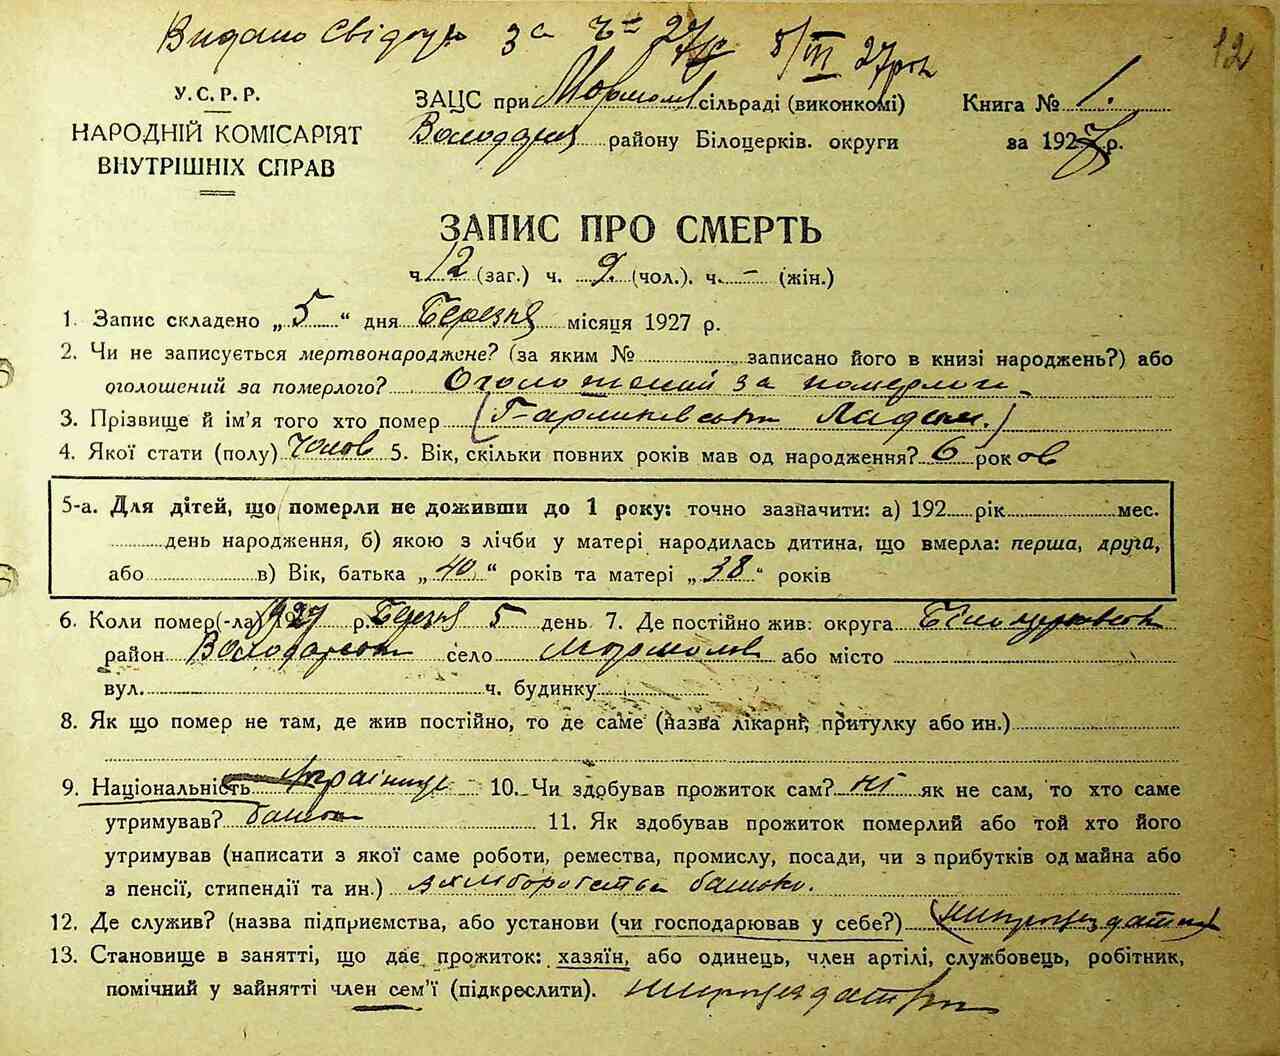 Видано Свідоц за ч= 27 8/III 27 рок
12
У.С.Р.Р.
НАРОДНІЙ КОМІСАРІЯТ
ВНУТРІШНІХ СПРАВ
ЗАЦС при сільраді (виконкомі)
району Білоцерків. округи
Книга № 1.
за 1927 р.
ЗАПИС ПРО СМЕРТЬ
ч. 12 (заг.) ч. 9. (чол.). ч. – (жін.)
1. Запис складено „ 5 “ дня Березня місяця 1927 р.
2. Чи не записується мертвонароджене? (за яким № записано його в книзі народжень?) або
оголошений за померлого? Оголошений за померлого
3. Прізвище й ім’я того хто помер
4. Якої стати (полу) Чолов 5. Вік, скільки повних років мав од народження? 6 років
5-а. Для дітей, що померли не доживши до 1 року: точно зазначити: а) 192 рік мес.
день народження, б) якою з лічби у матері народилась дитина, що вмерла: перша, друга,
або в) Вік, батька „ 40 “ років та матері „ 38 “ років
6. Коли помер(-ла) 1927 р. Березня 5 день 7. Де постійно жив: округа Білоцерківськ
район Володарськ село або місто
вул. ч. будинку
8. Як що помер не там, де жив постійно, то де саме (назва лікарні, притулку або ин.)
9. Національність українець 10. Чи здобував прожиток сам? ні як не сам, то хто саме
утримував? батько 11. Як здобував прожиток померлий або той хто його
утримував (написати з якої саме роботи, ремества, промислу, посади, чи з прибутків од майна або
з пенсії, стипендії та ин.) з хліборобства батько.
12. Де служив? (назва підприємства, або установи (чи господарював у себе?)
13. Становище в занятті, що дає прожиток: хазяїн, або одинець, член артілі, службовець, робітник,
помічний у зайнятті член сем’ї (підкреслити).